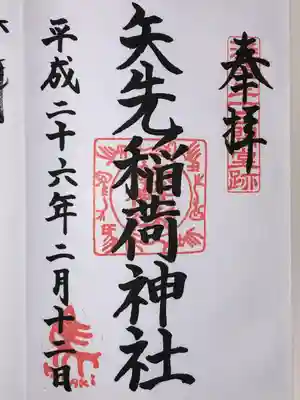 奉拝
矢先稲荷神社
平成二十六年二月十二日